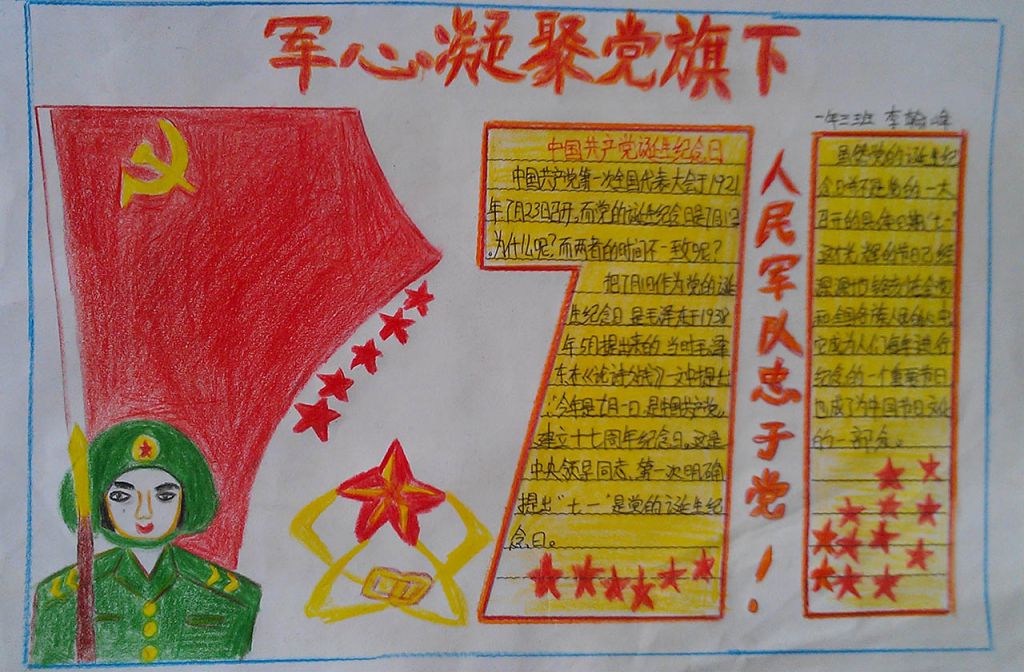 军心凝聚党旗下
一年三班 李翰峰
中国共产党诞生纪念日
中国共产党第一次全国代表大会于1921
年7月23日召开,而党的诞生纪念日是7月1日
。为什么呢?而两者的时间不一致呢?
把7月1日作为党的诞
生纪念日,是毛泽东于1938
年5月提出来的,当时毛泽
东在《论持久战》一文中提出
:“今年是七月一日,是中国共产党
建立十七周年纪念日,这是
中央领导同志,第一次明确
提出“七一”是党的诞生纪
念日。
人民军队忠于党!
虽然党的诞生纪
念日并不是党的一大
召开的具体日期,“七一”
这个光辉的节日已经
深深地铭刻在全党
和全国各族人民的心中
它成为人们每年进行
纪念的一个重要节日
也成了为中国节日文化
的一部分。